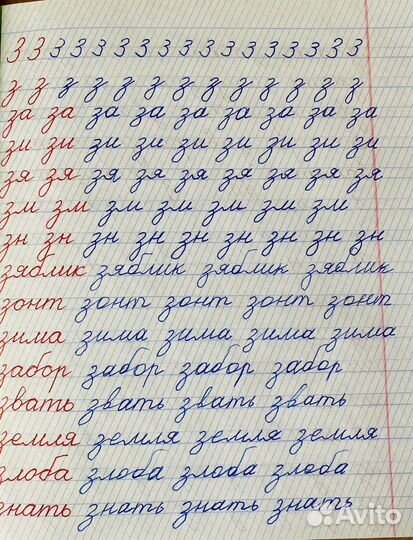 З З З З З З З З З З З З З З З З З
з з з з з з з з з з з з з
за за за за за за за за за
зи зи зи зи зи зи зи зи зи
зя зя зя зя зя зя зя зя зя
зм зм зм зм зм зм зм
зн зн зн зн зн зн зн зн зн
зяблик зяблик зяблик зяблик
зонт зонт зонт зонт зонт
зима зима зима зима зима
забор забор забор забор
звать звать звать звать
земля земля земля земля
злоба злоба злоба злоба
знать знать знать знать
Avito